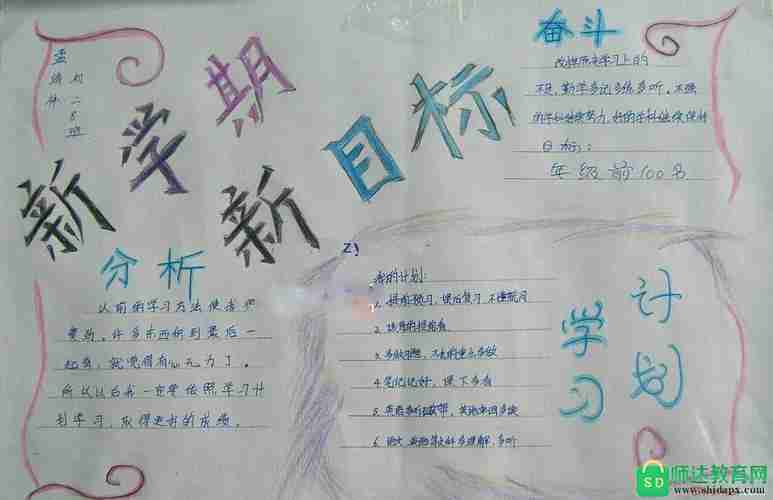 初二8班
新学期
新目标
奋斗
改掉历来学习上的
不足,勤学多记多练多听,不强
的学科继续努力,好的学科继续保持
目标:
年级前100名
分析
以前的学习方法使我
许多东西积到最后一
起看,就觉得有
所以以后我一定要依照学习计
划学习,取得更好的成绩。
学习
计划
我的计划:
1. 提前预习,课后复习,不懂就问
2. 该背的提前背
3. 多做习题,不会的重点多做
4. 笔记记好,课下多看
5. 英语单词多读
6. 语文 多理解,多听
师达教育网
www.shidapx.com
SD